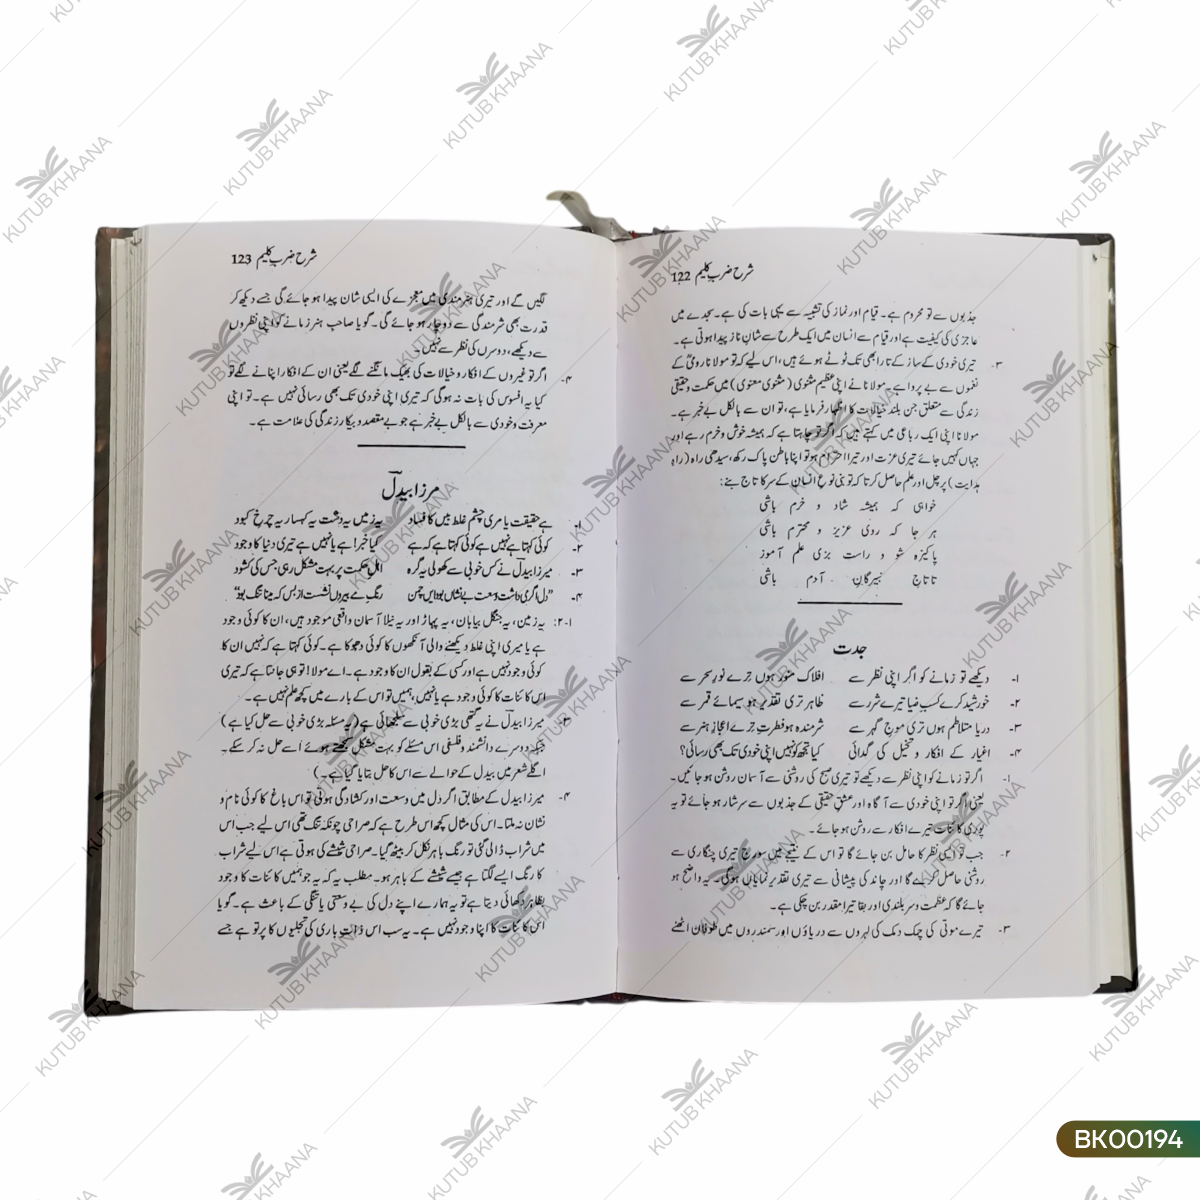 شرح ضرب کلیم 122
جذبوں سے تو محروم ہے۔ قیام اور نماز کی تشبیہ سے یہی بات کی ہے۔ سجدے میں
عاجزی کی کیفیت ہے اور قیام سے انسان میں ایک طرح سے شانِ ناز پیدا ہوتی ہے۔
۳۔ تیری خودی کے ساز کے تار ابھی تک ٹوٹے ہوئے ہیں، اس لیے کہ تو مولانا رومیؒ کے
نغموں سے بے پروا ہے۔ مولانا نے اپنی عظیم مثنوی (مثنوی معنوی) میں حکمت و حقیقی
زندگی سے متعلق جن بلند خیالات کا اظہار فرمایا ہے، تو ان سے بالکل بے خبر ہے۔
مولانا اپنی ایک رباعی میں کہتے ہیں کہ اگر تو چاہتا ہے کہ ہمیشہ خوش و خرم رہے اور
جہاں کہیں جائے تیری عزت اور تیرا احترام ہو تو اپنا باطن پاک رکھ، سیدھی راہ (راہِ
ہدایت) پر چل اور علم حاصل کرتا کہ تو بنی نوع انسان کے سر کا تاج بنے:
خواہی کہ ہمیشہ شاد و خرم باشی
ہر جا کہ روی عزیز و محترم باشی
پاکیزہ شو و راست بزی علم آموز
تا تاجِ نبیرگانِ آدم باشی
جدت
۱۔ دیکھے تو زمانے کو اگر اپنی نظر سے افلاک منور ہوں ترے نورِ سحر سے
۲۔ خورشید کرے کسبِ ضیا تیرے شرر سے ظاہر تری تقدیر ہو سیمائے قمر سے
۳۔ دریا متلاطم ہوں تری موجِ گہر سے شرمندہ ہو فطرت ترے اعجازِ ہنر سے
۴۔ اغیار کے افکار و تخیل کی گدائی کیا تجھ کو نہیں اپنی خودی تک بھی رسائی؟
۱۔ اگر تو زمانے کو اپنی نظر سے دیکھے تو تیری صبح کی روشنی سے آسمان روشن ہو جائیں۔
یعنی اگر تو اپنی خودی سے آگاہ اور عشقِ حقیقی کے جذبوں سے سرشار ہو جائے تو یہ
پوری کائنات تیرے افکار سے روشن ہو جائے۔
۲۔ جب تو ایسی نظر کا حامل بن جائے گا تو اس کے نتیجے میں سورج تیری چنگاری سے
روشنی حاصل کرے گا اور چاند کی پیشانی سے تیری تقدیر نمایاں ہوگی۔ یہ واضح ہو
جائے گا کہ عظمت و سربلندی اور بقا تیرا مقدر بن چکی ہے۔
۳۔ تیرے موتی کی چمک دمک کی لہروں سے دریاؤں اور سمندروں میں طوفان اٹھنے
شرح ضرب کلیم 123
لگیں گے اور تیری ہنرمندی میں معجزے کی ایسی شان پیدا ہو جائے گی جسے دیکھ کر
قدرت بھی شرمندگی سے دوچار ہو جائے گی۔ گویا صاحب ہنر زمانے کو اپنی نظروں
سے دیکھے، دوسروں کی نظر سے نہیں۔
۴۔ اگر تو غیروں کے افکار و خیالات کی بھیک مانگنے لگے یعنی ان کے افکار اپنانے لگے تو
کیا یہ افسوس کی بات نہ ہوگی کہ تیری اپنی خودی تک بھی رسائی نہیں ہے۔ تو اپنی
معرفت و خودی سے بالکل بے خبر ہے جو بے مقصد و بیکار زندگی کی علامت ہے۔
مرزا بیدلؔ
۱۔ ہے حقیقت یا مری چشمِ غلط بیں کا فساد یہ زمیں یہ دشت یہ کہسار یہ چرخِ کبود
۲۔ کوئی کہتا ہے نہیں ہے کوئی کہتا ہے کہ ہے کیا خبر! ہے یا نہیں ہے تیری دنیا کا وجود
۳۔ میرزا بیدلؔ نے کس خوبی سے کھولی یہ گرہ اہلِ حکمت پر بہت مشکل رہی جس کی کشود
۴۔ "دل اگر می داشت وسعت بے نشاں بود ایں چمن رنگِ مے بیروں نشست از بس کہ مینا تنگ بود"
۱-۲: یہ زمین، یہ جنگل بیابان، یہ پہاڑ اور یہ نیلا آسمان واقعی موجود ہیں، ان کا کوئی وجود
ہے یا میری اپنی غلط دیکھنے والی آنکھوں کا کوئی دھوکا ہے۔ کوئی کہتا ہے کہ نہیں ان کا
کوئی وجود نہیں ہے اور کسی کے بقول ان کا وجود ہے۔ اے مولا! تو ہی جانتا ہے کہ تیری
اس کائنات کا کوئی وجود ہے یا نہیں، ہمیں تو اس کے بارے میں کچھ علم نہیں ہے۔
۳۔ میرزا بیدلؔ نے یہ گتھی بڑی خوبی سے سلجھائی ہے (یہ مسئلہ بڑی خوبی سے حل کیا ہے)
جبکہ دوسرے دانشمند و فلسفی اس مسئلے کو بہت مشکل سمجھتے ہوئے اسے حل نہ کر سکے۔
اگلے شعر میں بیدل کے حوالے سے اس کا حل بتایا گیا ہے۔)
۴۔ میرزا بیدل کے مطابق اگر دل میں وسعت اور کشادگی ہوتی تو اس باغ کا کوئی نام و
نشان نہ ملتا۔ اس کی مثال کچھ اس طرح ہے کہ صراحی چونکہ تنگ تھی اس لیے جب اس
میں شراب ڈالی گئی تو رنگ باہر نکل کر بیٹھ گیا۔ صراحی شیشے کی ہوتی ہے اس لیے شراب
کا رنگ ایسے لگتا ہے جیسے شیشے کے باہر ہو۔ مطلب یہ کہ یہ جو ہمیں کائنات کا وجود
بظاہر دکھائی دیتا ہے تو یہ ہمارے اپنے دل کی بے وسعتی یا تنگی کے باعث ہے۔ گویا
اس کائنات کا اپنا وجود نہیں ہے۔ یہ سب اس ذات باری کی تجلیوں کا پرتو ہے جسے
KUTUB KHAANA
BK00194